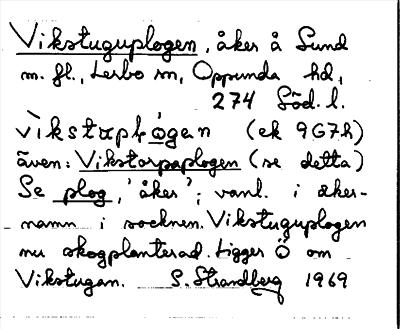 Vikstuguplogen, åker å Sund
m. fl., Lerbo sn, Oppunda hd,
274 Söd. l.
vìkstɑpLógan (ek 9G7h)
även: Vikstorpaplogen (se detta)
Se plog, 'åker'; vanl. i åker-
namn i socknen. Vikstuguplogen
nu skogplanterad. Ligger Ö om
Vikstugan. S. Strandberg 1969